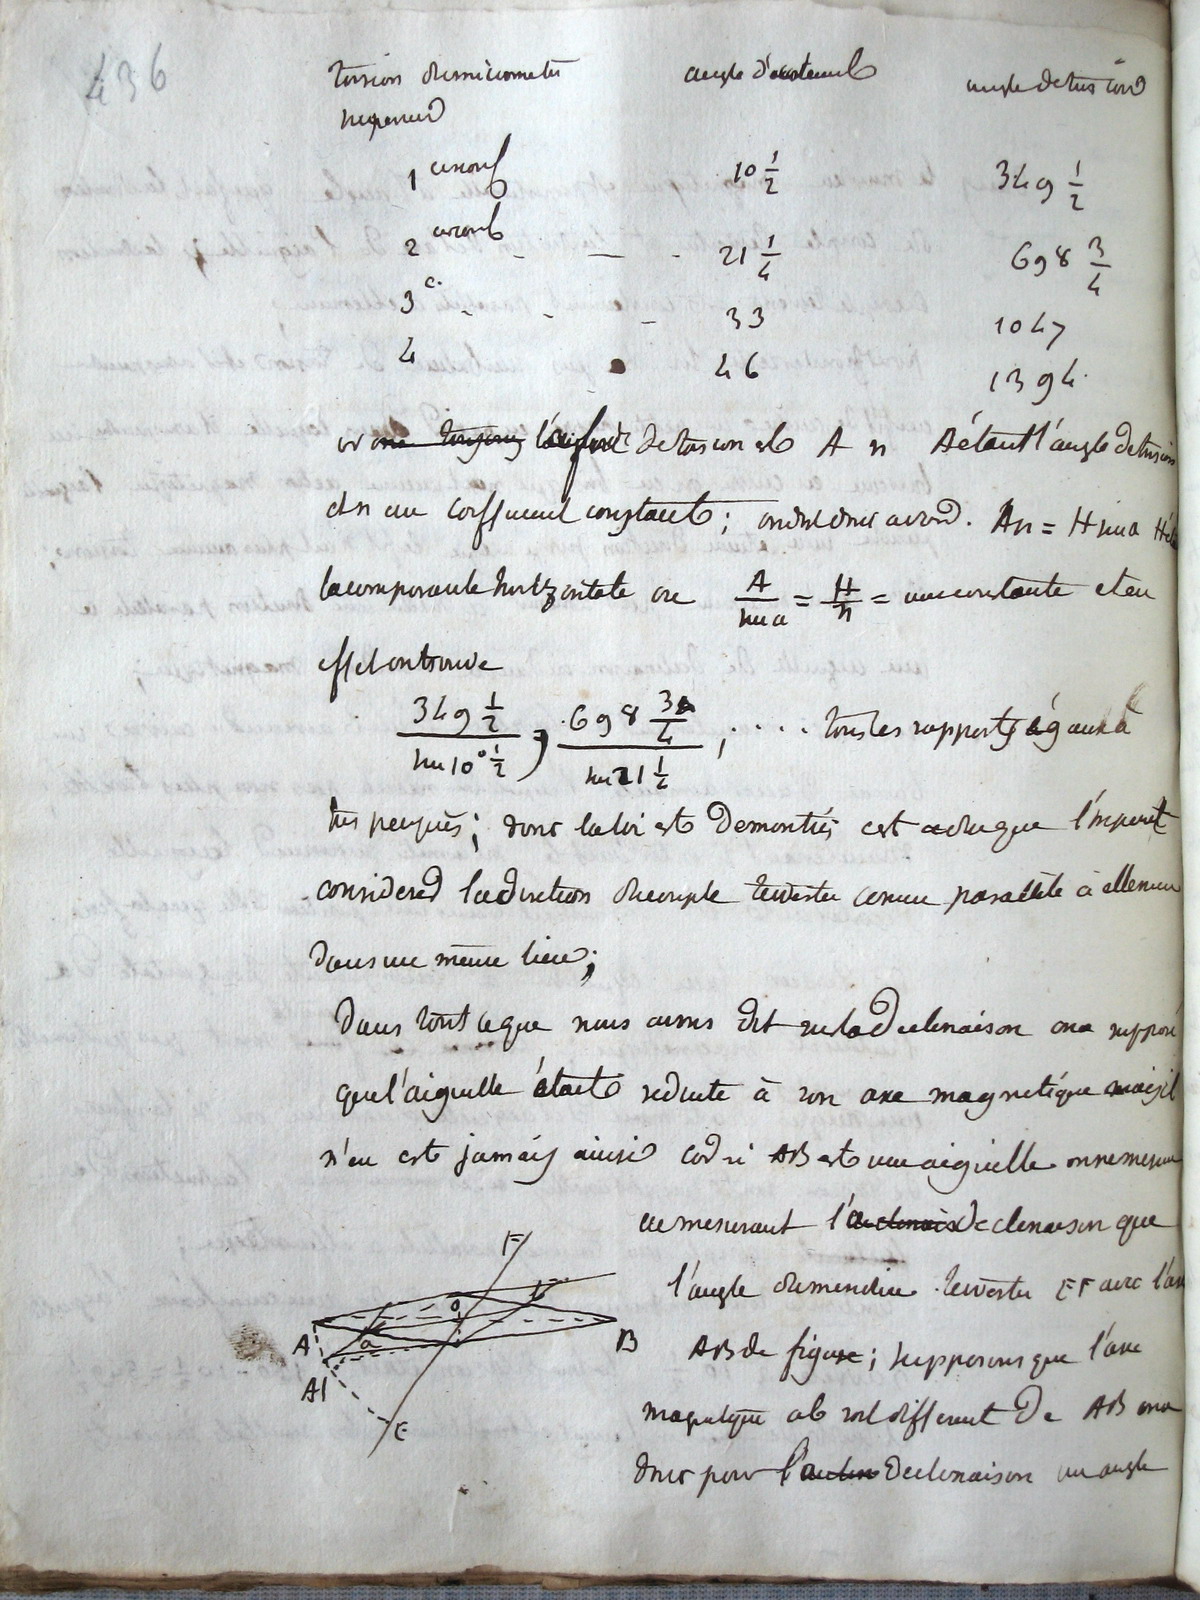 436
torsion du micrometre angle d'ecartement angle de torsion
superieur
1 circonf 10 1/2 349 1/2
2 circonf - — - 21 1/4 698 3/4
3 c. - - — 33 1047
4 46 1394.
or la force de torsion est A n A étant l'angle de torsion
et n un coefficient constant; on doit donc avoir. An = H sin a H ét
la composante horizontale ou A/sin a = H/n = une constante et en
effet on trouve
349 1/2 / sin 10° 1/2, 698 3/4 / sin 21 1/2, .... tous les rapports égaux à
très peu près; donc la loi est demontrée c'est a dire que l'on peut
considerer la direction du couple terrestre comme parallèle à elle meme
dans un même lieu;
Dans tout ce que nous avons dit sur la declinaison on a supposé
que l'aiguille était reduite à son axe magnetique mais il
n'en est jamais ainsi car si AB est une aiguille on ne mesure
en mesurant la declinaison que
l'angle du meridien terrestre EF avec l'axe
AB de figure; supposons que l'axe
magnetique ab soit different de AB on a
donc pour declinaison un angle
F
o
b
A
a
B
A'
E